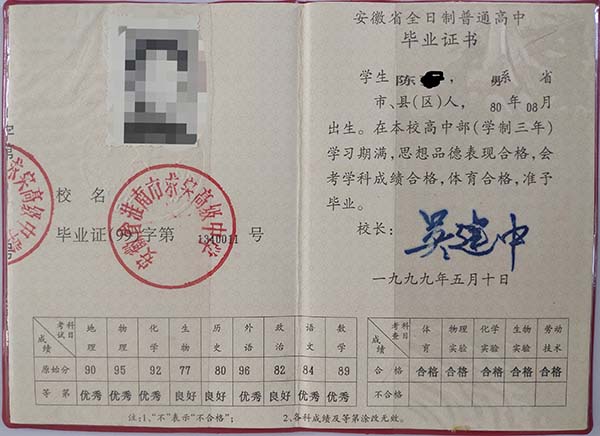 安徽省淮南市蔡家高级中学
校 名
毕业证(99)字第 1340011 号
安徽省全日制普通高中
毕业证书
学生 陈 , 男系 省
市、县(区)人, 80 年 08月
出生。在本校高中部(学制三年)
学习期满,思想品德表现合格,会
考学科成绩合格,体育合格,准予
毕业。
校长: 吴建中
一九九九年五月十日
考试科目 成绩 地理 物理 化学 生物 历史 外语 政治 语文 数学
原始分 90 95 92 77 80 96 82 84 89
等 第 优秀 优秀 优秀 良好 良好 优秀 良好 优秀 优秀
考查科目 成绩 体育 物理实验 化学实验 生物实验 劳动技术
合 格 合格 合格 合格 合格 合格
不合格
注:1、“不”表示“不合格”; 2、各科成绩及等第涂改无效。